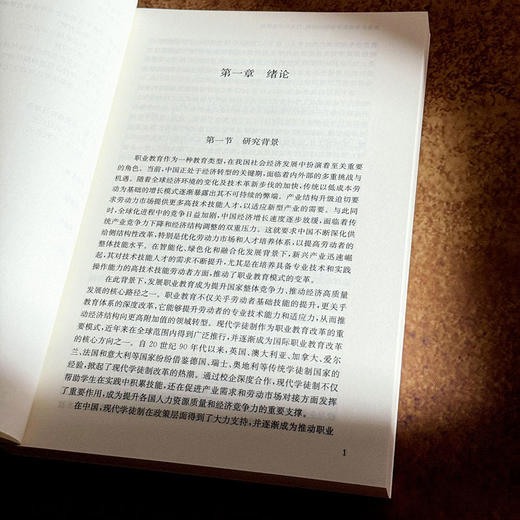 第一章 绪论
第一节 研究背景
职业教育作为一种教育类型,在我国社会经济发展中扮演着至关重要
的角色。当前,中国正处于经济转型的关键期,面临着内外部的多重挑战与
机遇。随着全球经济环境的变化及技术革新步伐的加快,传统以低成本劳
动为基础的增长模式逐渐暴露出其不可持续的弊端。产业结构升级迫切要
求劳动力市场提供更多高技术技能人才,以适应新型产业的需要。与此同
时,全球化进程中的竞争日益加剧,中国经济增长速度逐步放缓,面临着传
统产业竞争力下降和经济结构调整的双重压力。这就要求中国不断深化供
给侧结构性改革,特别是优化劳动力市场和人才培养体系,以提高劳动者的
整体技能水平。在智能化、绿色化和融合化发展背景下,新兴产业迅速崛
起,其对技术技能人才的需求不断提升,尤其是在培养具备专业技术和实践
操作能力的高技术技能劳动者方面,推动了职业教育模式的变革。
在此背景下,发展职业教育成为提升国家整体竞争力、推动经济高质量
发展的核心路径之一。职业教育不仅关乎劳动者基础技能的提升,更关乎
教育体系的深度改革,它能够提升劳动者的专业技术能力和适应力,从而推
动经济结构向更高附加值的领域转型。现代学徒制作为职业教育改革的重
要模式,近年来在全球范围内得到广泛推行,并逐渐成为国际职业教育改革
的核心方向之一。自20世纪90年代以来,英国、澳大利亚、加拿大、爱尔
兰、法国和意大利等国家纷纷借鉴德国、瑞士、奥地利等传统学徒制国家的
经验,掀起了现代学徒制改革的热潮。通过校企深度合作,现代学徒制不仅
帮助学生在实践中积累技能,还在促进产业需求和劳动市场对接方面发挥
了重要作用,成为提升各国人力资源质量和经济竞争力的重要支撑。
在中国,现代学徒制在政策层面得到了大力支持,并逐渐成为推动职业
1